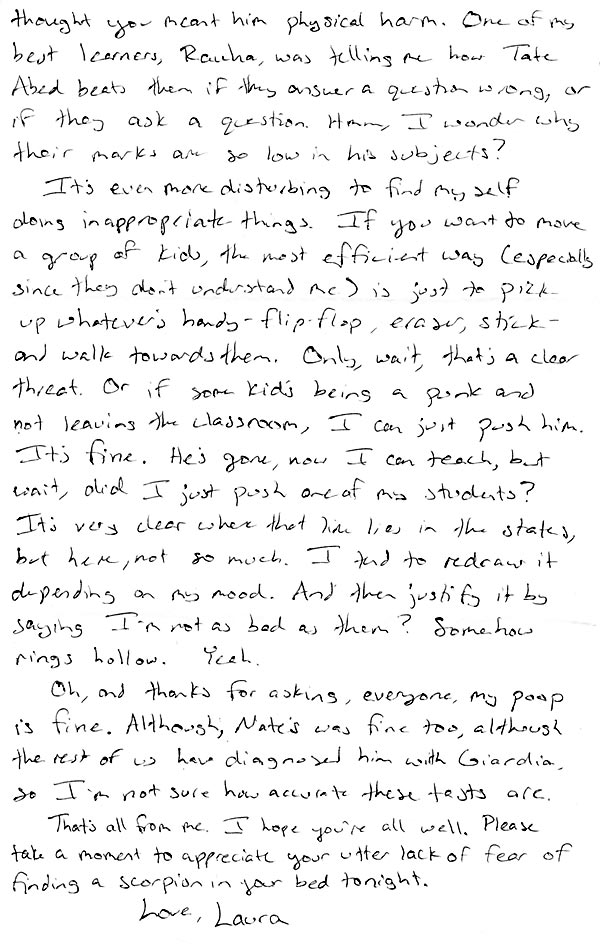 thought you meant him physical harm. One of my
best learners, Rauha, was telling me how Tate
Abed beats them if they answer a question wrong, or
if they ask a question. Hmm, I wonder why
their marks are so low in his subjects?
It's even more disturbing to find my self
doing inappropriate things. If you want to move
a group of kids, the most efficient way (especially
since they don't understand me) is just to pick
up whatever's handy - flip-flop, eraser, stick -
and walk towards them. Only, wait, that's a clear
threat. Or if some kid's being a punk and
not leaving the classroom, I can just push him.
It's fine. He's gone, now I can teach, but
wait, did I just push one of my students?
It's very clear where that line lies in the states,
but here, not so much. I tend to redraw it
depending on my mood. And then justify it by
saying I'm not as bad as them? Somehow
rings hollow. Yeah.
Oh, and thanks for asking, everyone, my poop
is fine. Although, Nate's was fine too, although
the rest of us have diagnosed him with Giardia,
so I'm not sure how accurate these tests are.
That's all from me. I hope you're all well. Please
take a moment to appreciate your utter lack of fear of
finding a scorpion in your bed tonight.
Love, Laura